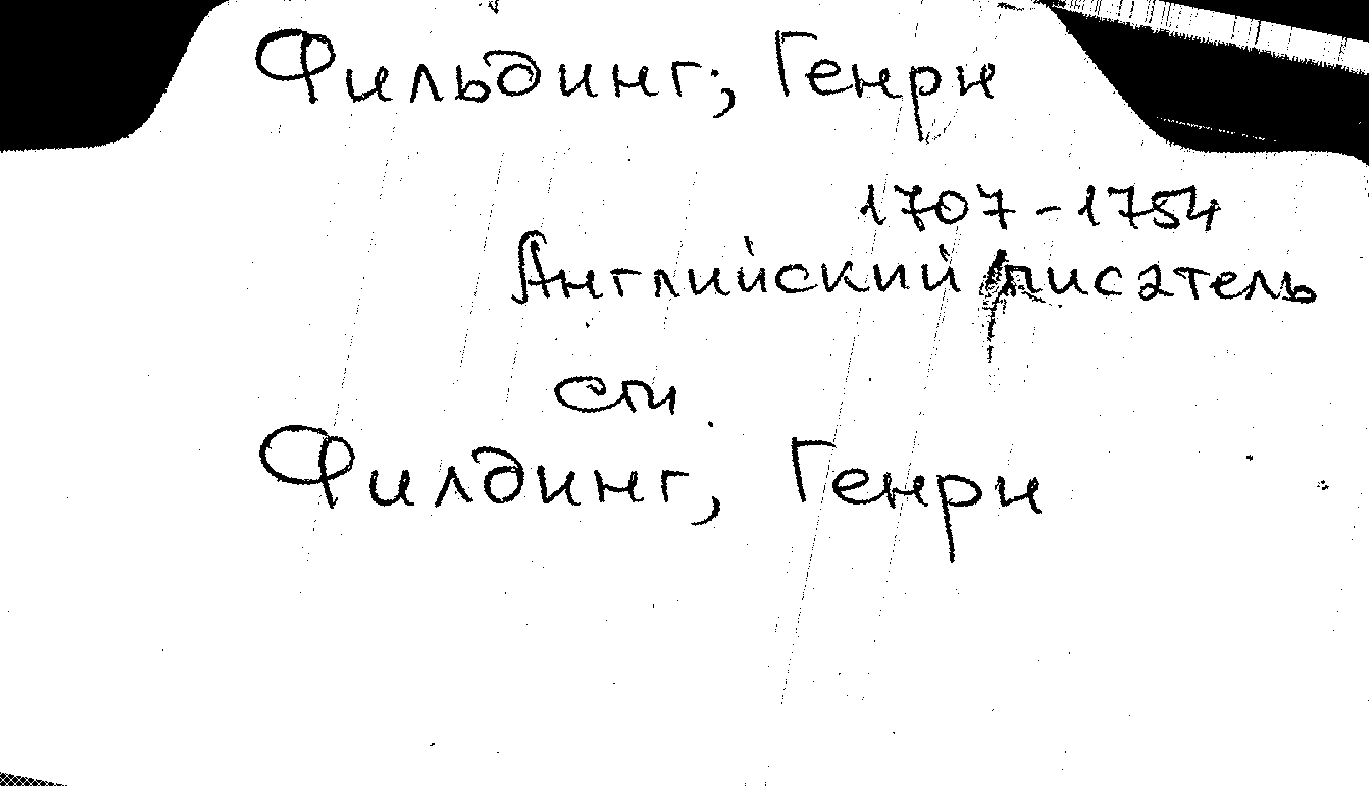 Фильдинг, Генри
1707-1754
Английский писатель
см.
Филдинг, Генри